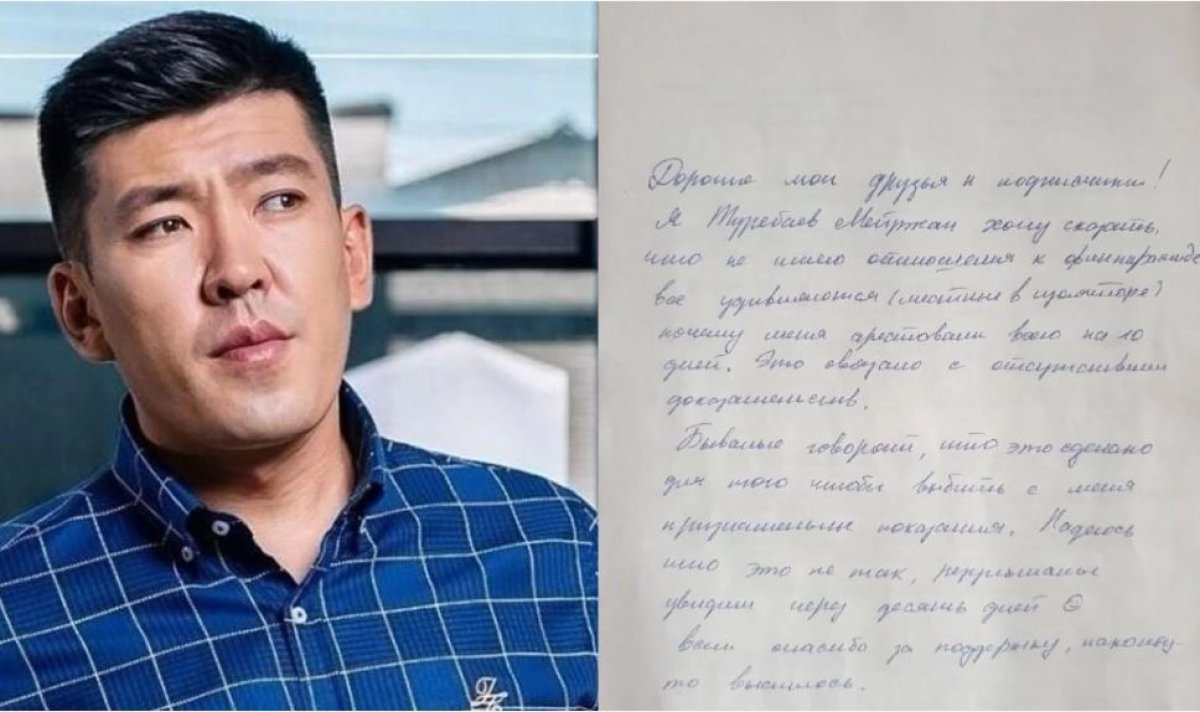 Дорогие мои друзья и подписчики!
Я Туребаев Мейржан хочу сказать,
что не имею отношения к финпирамиде
все удивляются (местные в изоляторе)
почему меня арестовали всего на 10
дней. Это связано с отсутствием
доказательств.
Бывалые говорят, что это сделано
для того чтобы выбить с меня
признательные показания. Надеюсь
что это не так, результаты
увидим через десять дней
всем спасибо за поддержку, наконец-
то выспалось.